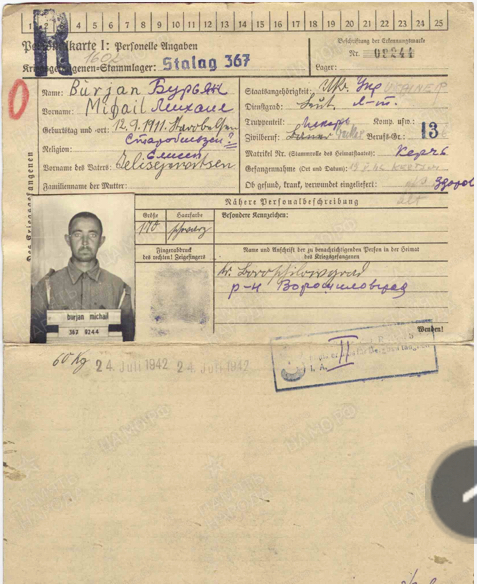 1 2 3 4 5 6 7 8 9 10 11 12 13 14 15 16 17 18 19 20 21 22 23 24 25
Personalkarte I: Personelle Angaben
Kriegsgefangenen-Stammlager: Stalag 367
Beschriftung der Erkennungsmarke
Nr. 08244
Lager:
Des Kriegsgefangenen
Name: Burjan Бурьян
Vorname: Migail Михаил
Geburtstag und -ort: 12.9.1911.
Старобильск
Religion:
Vorname des Vaters: Елисей
Familienname der Mutter:
Staatsangehörigkeit: Укр UKRAINER
Dienstgrad: Leut Л-т.
Truppenteil: Komp. usw.:
Zivilberuf: Berufs-Gr.: 13
Matrikel Nr. (Stammrolle des Heimatstaates): Керчь
Gefangennahme (Ort und Datum):
Ob gesund, krank, verwundet eingeliefert: Здоров
Nähere Personalbeschreibung
Größe Haarfarbe Besondere Kennzeichen:
170 schwarz
Fingerabdruck
des rechten! Zeigefingers
Name und Anschrift der zu benachrichtigenden Person in der Heimat
des Kriegsgefangenen
Kr. Woroschilowgrad
р-н Ворошиловград
burjan michail
367 8244
Wenden!
60 Kg 24. Juli 1942 24. Juli 1942
II
ПАМЯТЬ НАРОДА